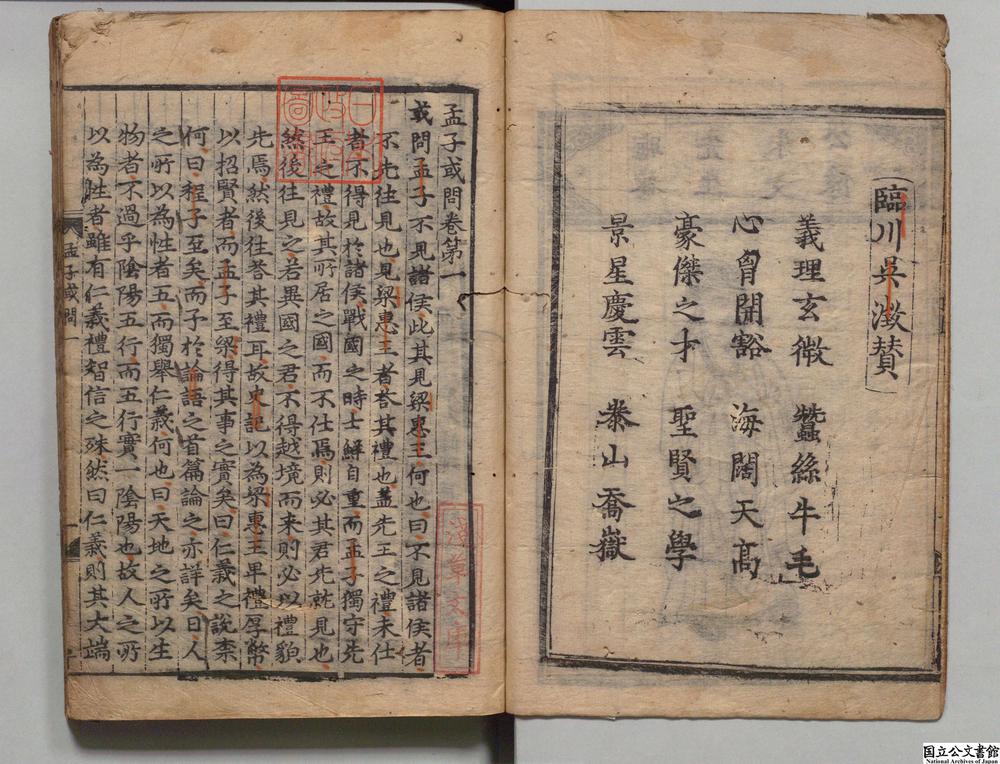 臨川吳澂賛
義理玄微 蠶絲牛毛
心胷開豁 海闊天髙
豪傑之才 聖賢之學
景星慶雲 泰山喬嶽
孟子或問卷第一
或問孟子不見諸侯此其見梁惠王何也曰不見諸侯者
不先徃見也見梁惠王者荅其禮也盖先王之禮未仕
者不得見於諸侯戰國之時士鮮自重而孟子獨守先
王之禮故其所居之國而不仕焉則必其君先就見也
然後往見之若異國之君不得越境而来則必以禮貌
先焉然後往荅其禮耳故史記以為梁惠王卑禮厚幣
以招賢者而孟子至梁得其事之實矣曰仁義之說柰
何曰程子至矣而子於論語之首篇論之亦詳矣曰人
之所以為性者五而獨舉仁義何也曰天地之所以生
物者不過乎陰陽五行而五行實一陰陽也故人之所
以為性者雖有仁義禮智信之殊然曰仁義則其大端
孟子或問一
一
淺草文庫
国立公文書館
National Archives of Japan